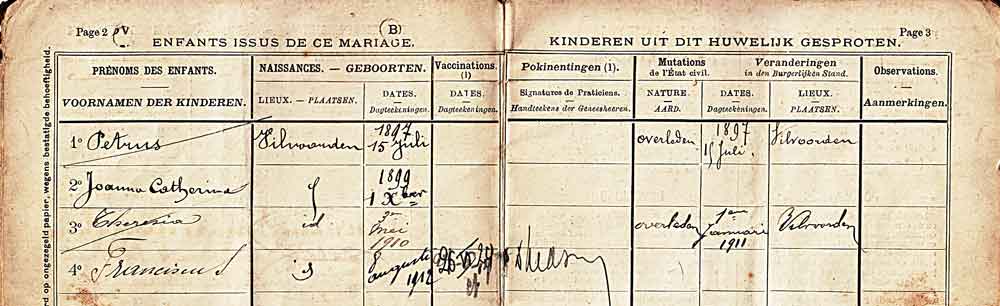 Page 2
(B)
Page 3
ENFANTS ISSUS DE CE MARIAGE.
KINDEREN UIT DIT HUWELIJK GESPROTEN.
PRÉNOMS DES ENFANTS.
VOORNAMEN DER KINDEREN.
NAISSANCES. — GEBOORTEN.
LIEUX. — PLAATSEN.
DATES.
Dagteekeningen.
Vaccinations.
(1)
DATES.
Dagteekeningen.
Pokinentingen (1).
Signatures de Praticiens.
Handteekens der Geneesheeren.
Mutations
de l'État civil.
Veranderingen
in den Burgerlijken Stand.
NATURE.
AARD.
DATES.
Dagteekeningen.
LIEUX.
PLAATSEN.
Observations.
Aanmerkingen.
1° Petrus Vilvoorden 1897 15 Juli overleden 1897 15 Juli Vilvoorden
2° Joanna Catherina 1899 1 Xber
3° Theresia id 3n mei 1910 overleden 1en januari 1911 Vilvoorden
4° Franciscus 8 auguste 1912
rd op ongezegeld papier, wegens bestatigde behoeftigheid.